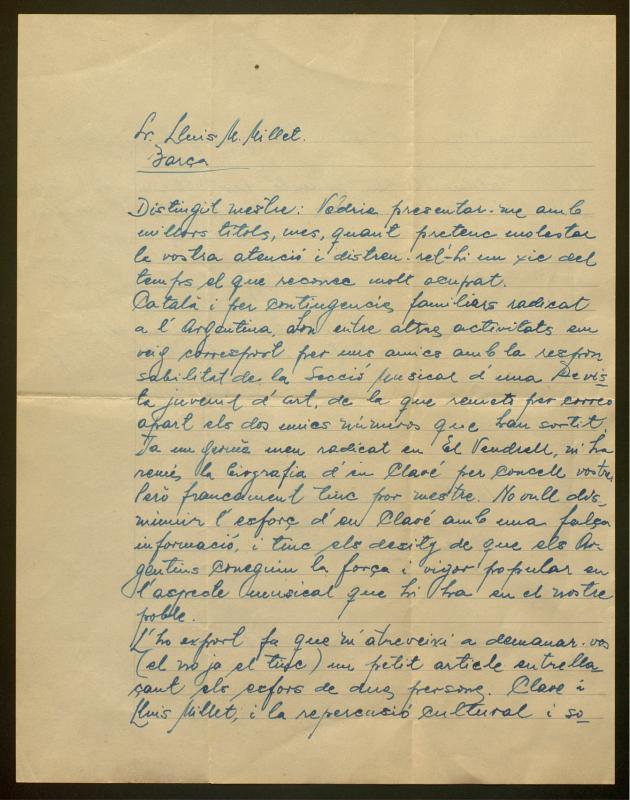 Sr. Lluis M. Millet.
Barça
Distingit mestre: Vodria presentar-me amb
millors titols, mes, quant pretenc molestar
la vostra atenció i distreu-rel-hi un xic del
temps el que reconec molt ocupat.
Català i per contingencies familiars radicat
a l'Argentina, don entre altres activitats em
veig correspost per uns amics amb la respon
sabilitat de la Secció Musical d'una Revis-
ta juvenil d'art, de la que remets per correo
apart els dos unics numeros que han sortit.
Ja un germà meu radicat en El Vendrell, m'ha
remés la biografia d'en Clavé per concell vostre.
Però francament tinc por mestre. No vull dis-
minuir l'esforç d'en Clavé amb una falça
informació, i tinc els desitg de que els Ar-
gentins coneguin la força i vigor popular en
l'aspecte musical que hi ha en el nostre
poble.
L'ho export fa que m'atreveixi a demanar-vos
(el no ja el tinc) un petit article entrella-
çant els esfors de dues persones. Clavé i
Lluis Millet, i la repercusió cultural i so-